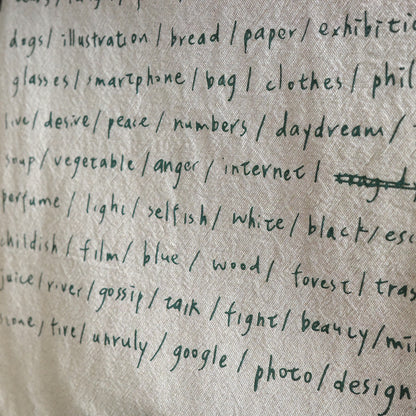 dogs/ illustration / bread / paper / exhibitio
glasses / smartphone / bag / clothes / phil
live / desire / peace / numbers / daydream /
soup / vegetable / anger / internet /
perfume / light / selfish / white / black / esc
childish / film / blue / wood / forest / tras
juice / river / gossip / talk / fight / beauty / mi
stone / fire / unruly / google / photo / design